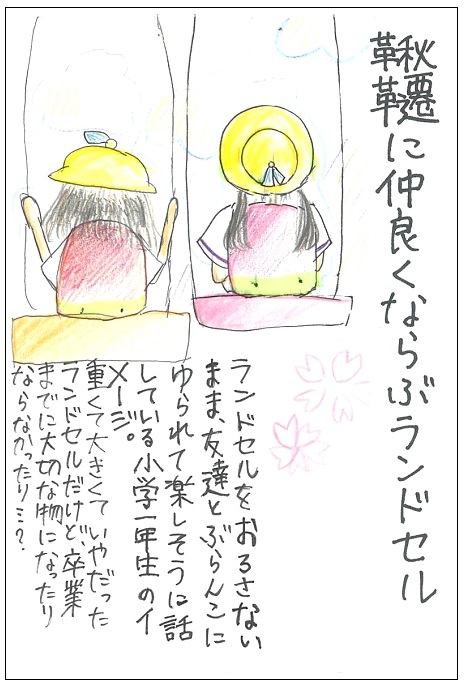 鞦韆に仲良くならぶランドセル
ランドセルをおろさない
まま、友達とぶらんこに
ゆられて楽しそうに話
している小学一年生のイ
メージ。
重くて大きくていやだった
ランドセルだけど、卒業
までに大切な物になったり
ならなかったり…？